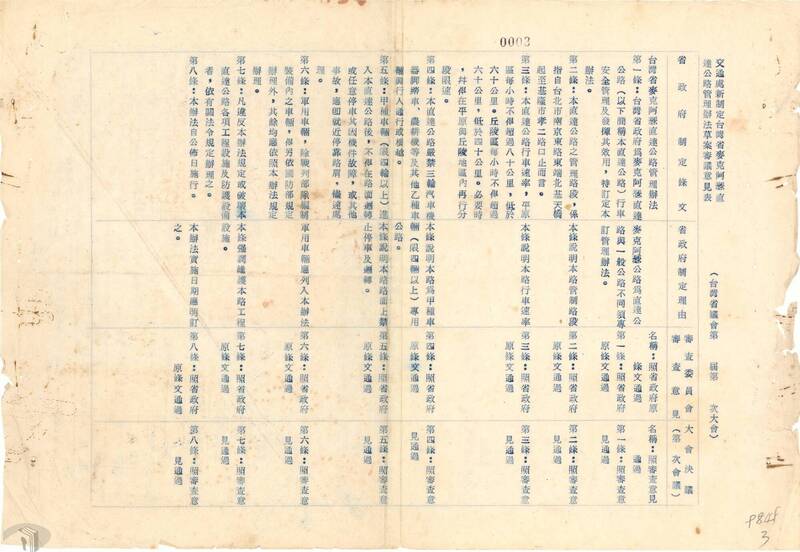 0003
交通處新制定台灣省麥克阿瑟直
達公路管理辦法草案審議意見表
(台灣省議會第　屆第　次大會)
省政府制定條文
省政府制定理由
審查委員會
審查意見
大會決議
(第　次會議)
台灣省麥克阿瑟直達公路管理辦法
名稱：照省政府原
條文通過
名稱：照審查意見
通過
第一條：台灣省政府為麥克阿瑟直達
公路(以下簡稱本直達公路)行車
安全管理及發揮其效用，特訂定本
辦法。
麥克阿瑟公路為直達公
路與一般公路不同須專
訂管理辦法。
第一條：照省政府
原條文通過
第一條：照審查意
見通過
第二條：本直達公路之管理路段，係
指自台北市南京東路東端北基天橋
起至基隆市孝二路口止而言。
本條說明本路管制路段
第二條：照省政府
原條文通過
第二條：照審查意
見通過
第三條：本直達公路行車速率，平原
區每小時不得超過八十公里，低於
六十公里。丘陵區每小時不得超過
六十公里，低於四十公里。必要時
，並得在平原與丘陵地區內再行分
段限速。
本條說明本路行車速率
第三條：照省政府
原條文通過
第三條：照審查意
見通過
第四條：本直達公路嚴禁三輪汽車機
器腳踏車、農耕機等及其他乙種車
輛與行人通行或橫越。
本條說明本路為甲種車
輛(限四輪以上)專用
公路。
第四條：照省政府
原條文通過
第四條：照審查意
見通過
第五條：甲種車輛(限四輪以上)進
入本直達公路後，不得在路面迴轉
或任意停車其因機件故障，或其他
事故，應即就近停靠路肩，儘速處
理。
本條說明本路路面上禁
止停車及迴轉。
第五條：照省政府
原條文通過
第五條：照審查意
見通過
第六條：軍用車輛，除戰列部隊編制
裝備內之車輛，得另依國防部規定
辦理外，其餘均應依照本辦法規定
辦理。
軍用車輛應列入本辦法
第六條：照省政府
原條文通過
第六條：照審查意
見通過
第七條：凡違反本辦法規定或破壞本
直達公路各項工程設施及防護設備
者，依有關法令規定辦理之。
本條強調維護本路工程
設施。
第七條：照省政府
原條文通過
第七條：照審查意
見通過
第八條：本辦法自公佈日施行。
本辦法實施日期應明訂
之。
第八條：照省政府
原條文通過
第八條：照審查意
見通過
3